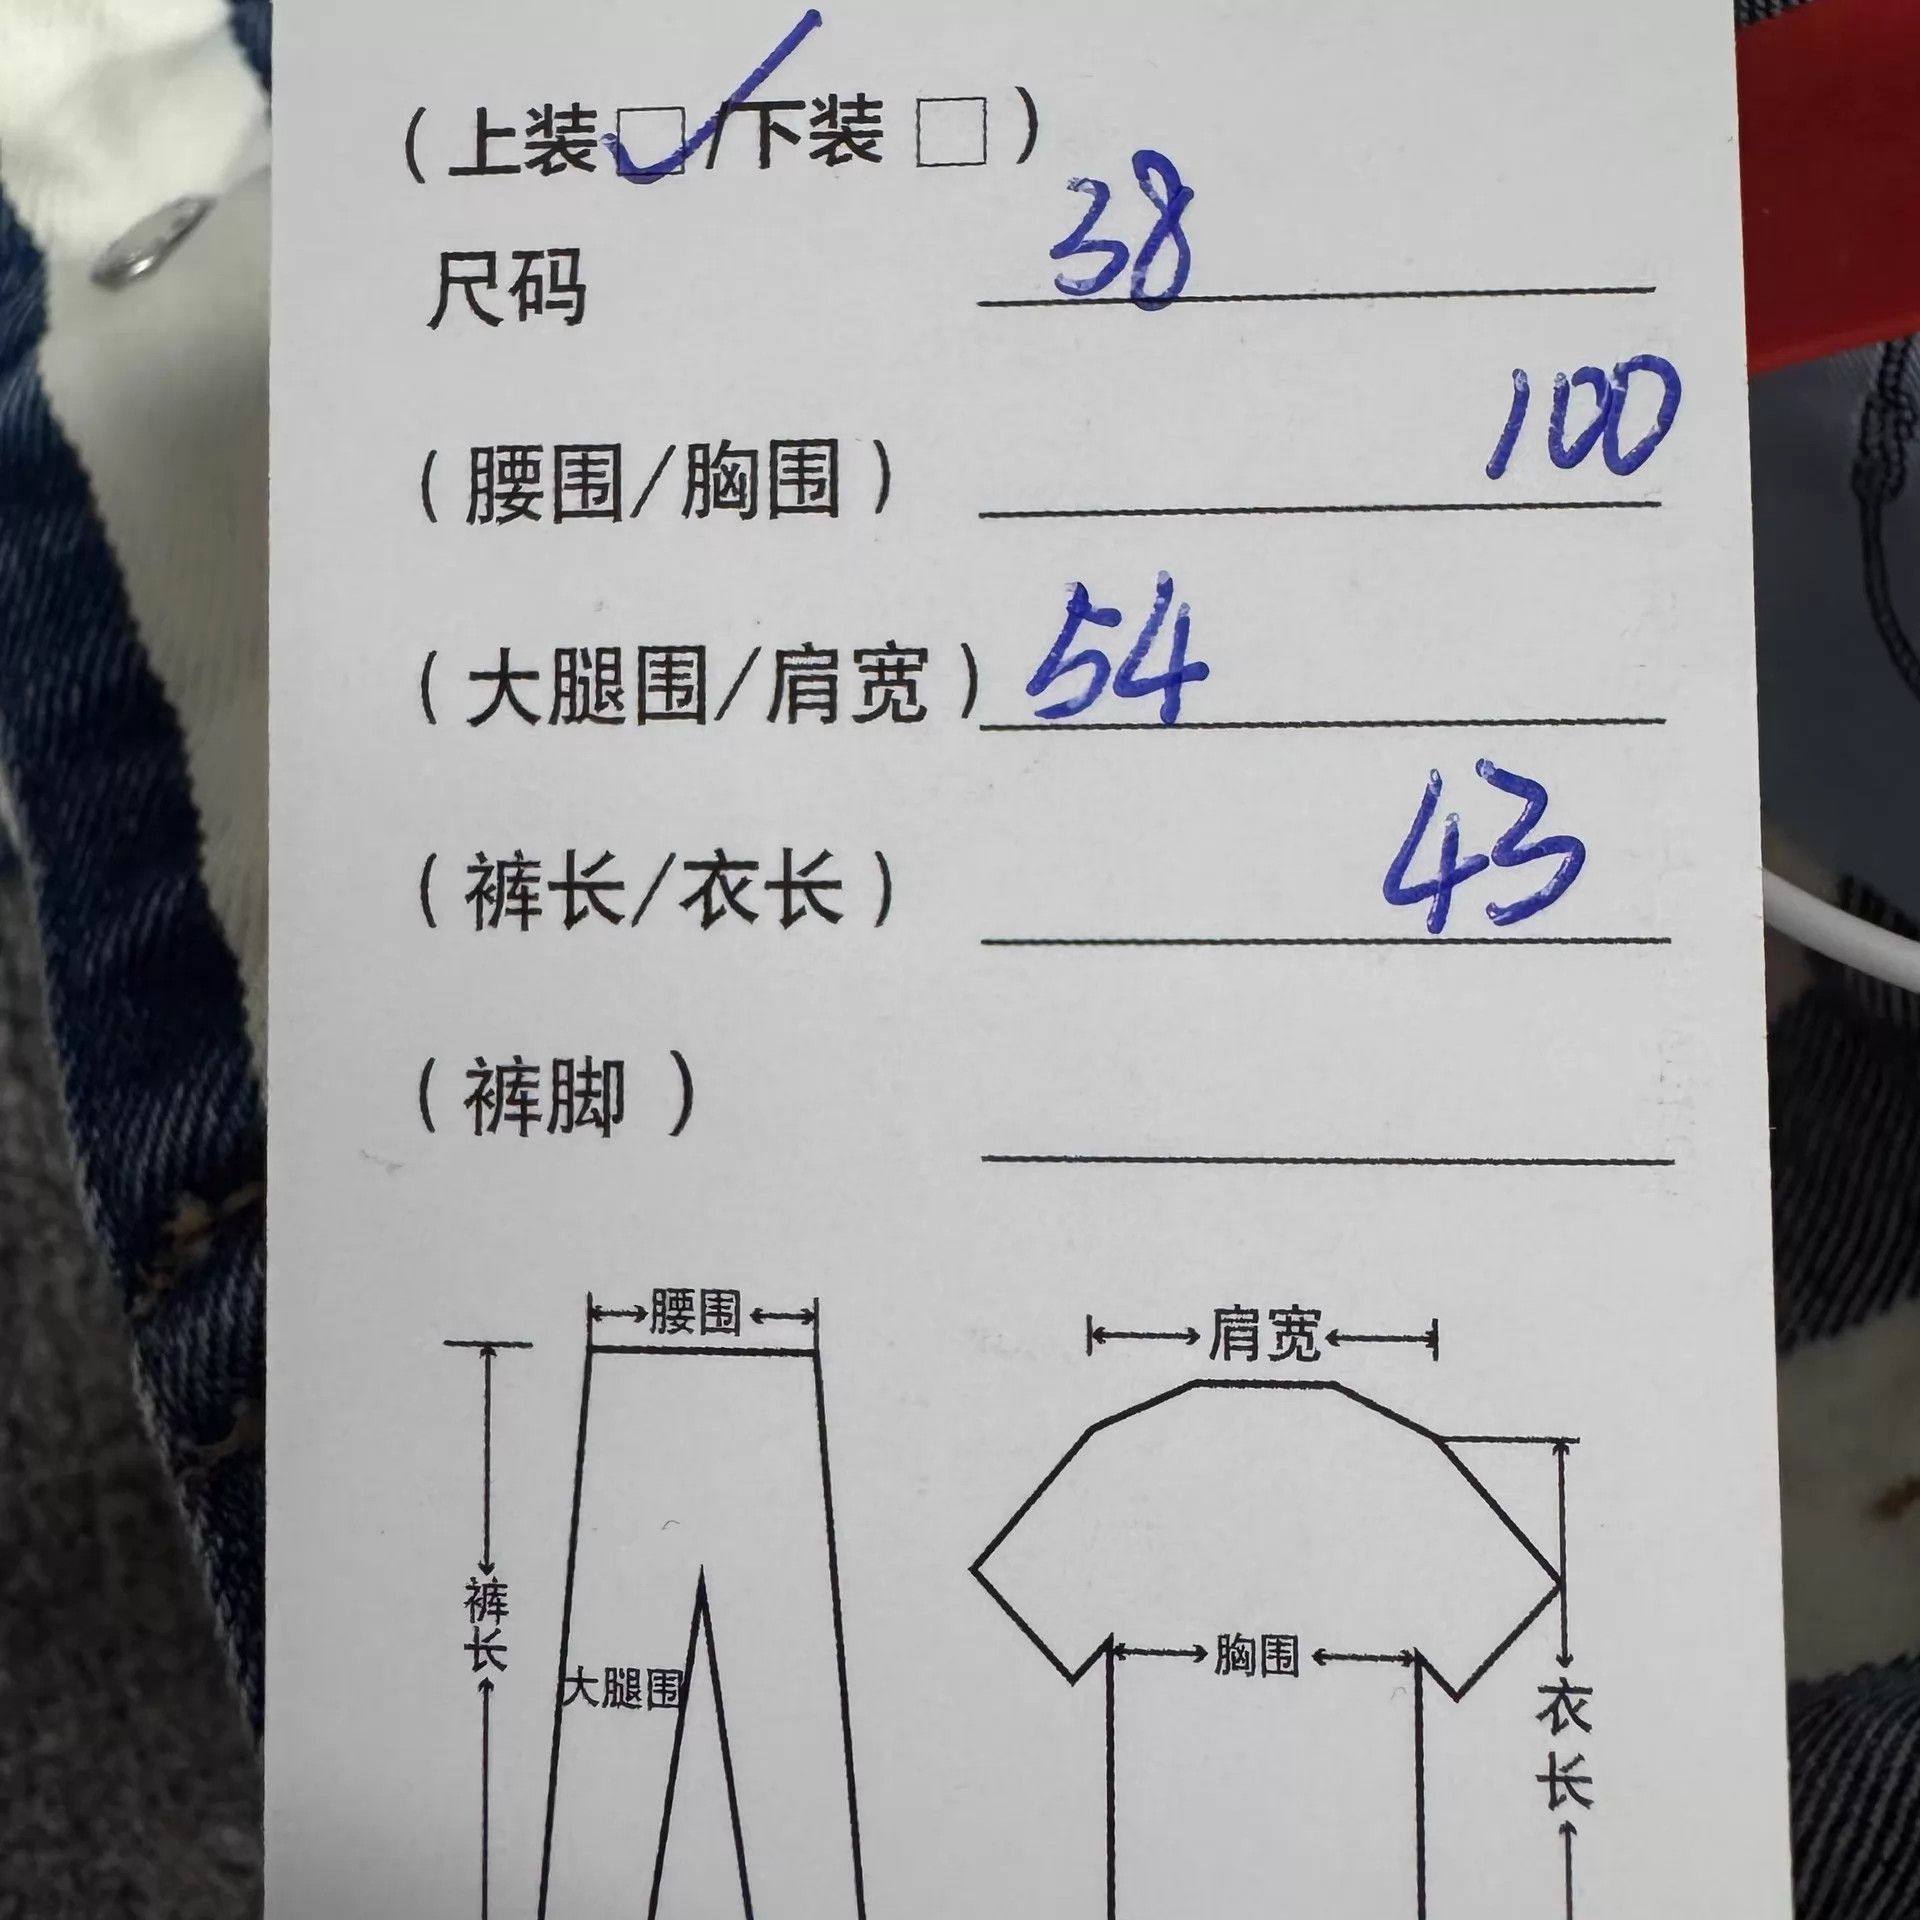 (上装□/下装□)
尺码 38
(腰围/胸围) 100
(大腿围/肩宽) 54
(裤长/衣长) 43
(裤脚 )
腰围
肩宽
裤长
大腿围
胸围
衣长